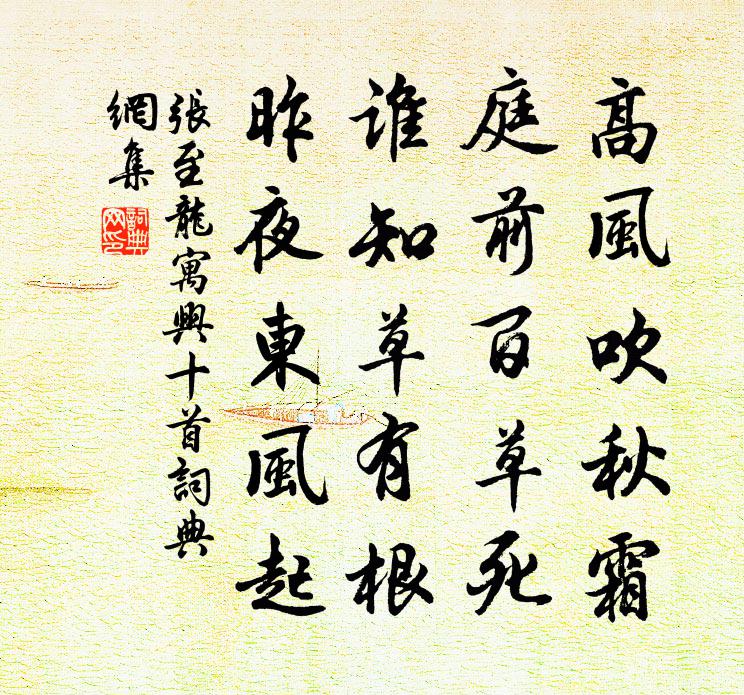 高風吹秋霜
庭前百草死
誰知草有根
昨夜東風起
張至龍寓興十首詞典
網集
詞典
网印